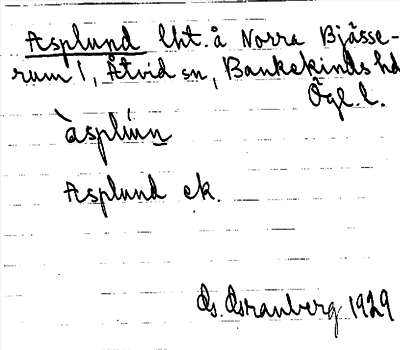 Asplund lht. å Norra Bjässe-
rum 1, Åtvid sn, Bankekinds hd
Ögl. l.
àsplúnn
Asplund ek.
G. Granberg 1929